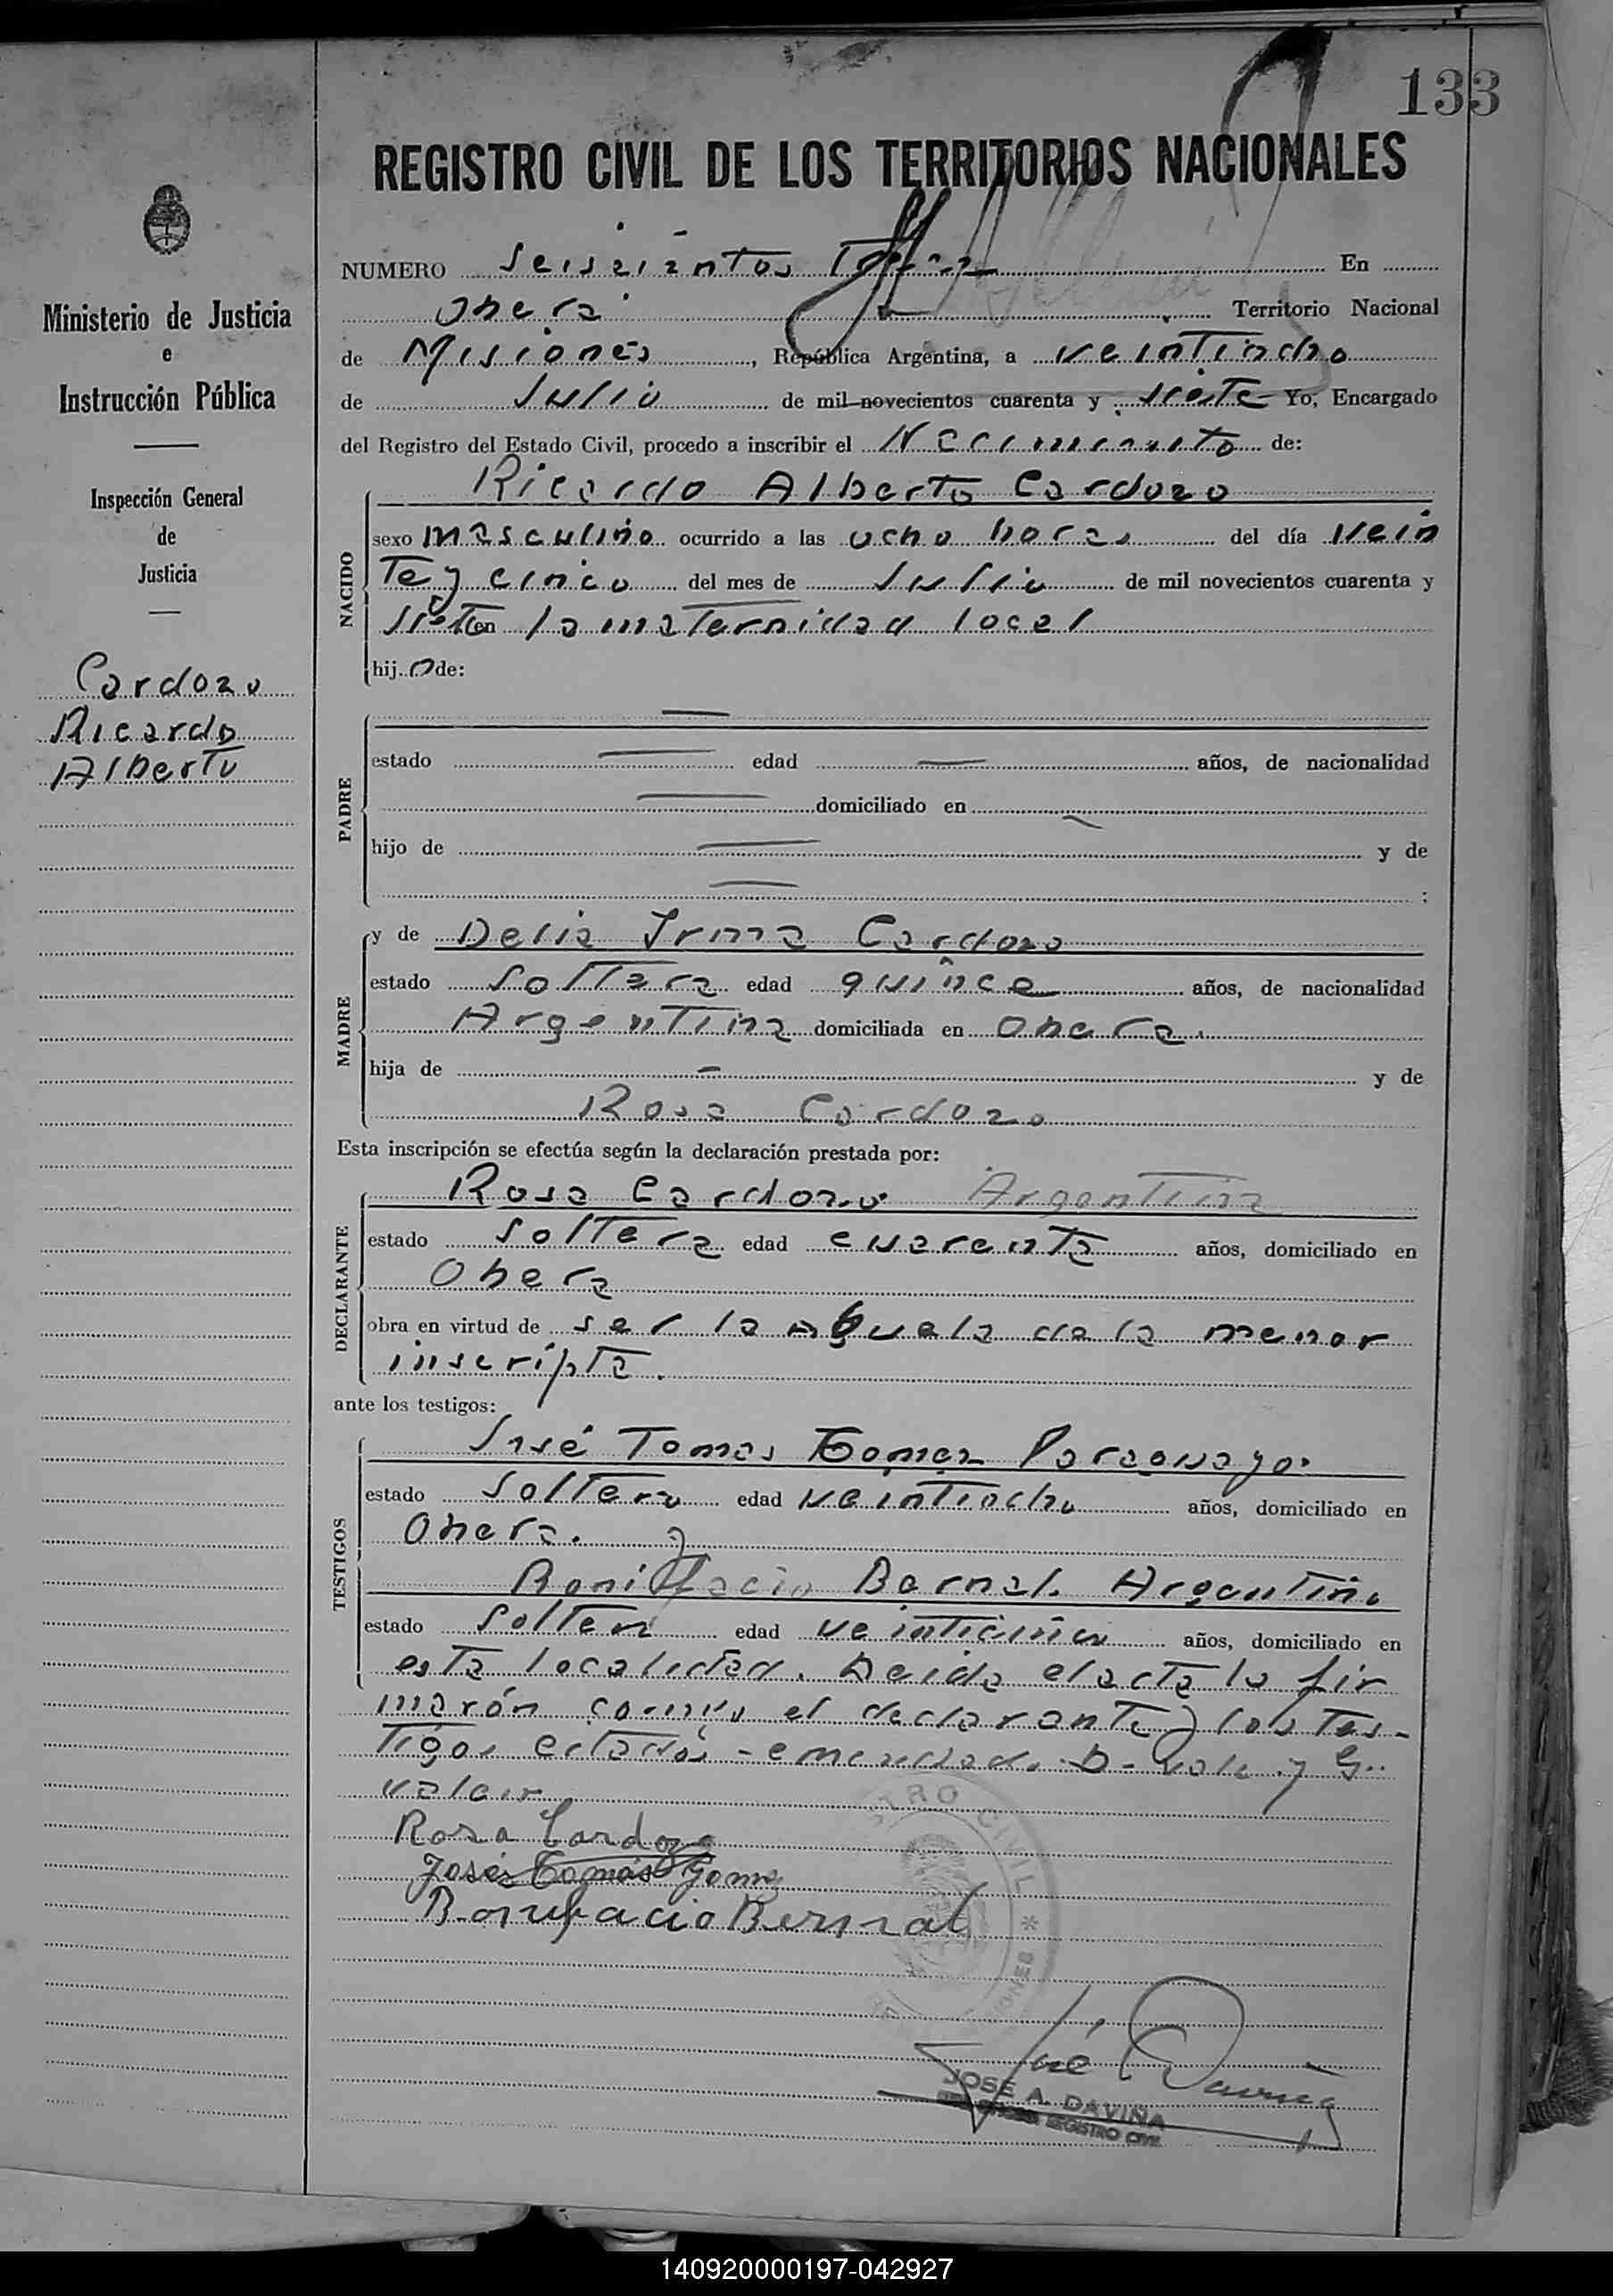 133
REGISTRO CIVIL DE LOS TERRITORIOS NACIONALES
NUMERO seiscientos En
Oberá Territorio Nacional
de Misiones, República Argentina, a veintiocho
de Julio de mil novecientos cuarenta y siete Yo, Encargado
del Registro del Estado Civil, procedo a inscribir el Nacimiento de:
NACIDO
Ricardo Alberto Cardozo
sexo masculino ocurrido a las ocho horas del día vein
te y cinco del mes de Julio de mil novecientos cuarenta y
siete en la maternidad local
hijo de:
PADRE
estado edad años, de nacionalidad
domiciliado en
hijo de y de
;
MADRE
y de Delia Irma Cardozo
estado Soltera edad quince años, de nacionalidad
Argentina domiciliada en Obera.
hija de y de
Rosa Cardozo
Esta inscripción se efectúa según la declaración prestada por:
DECLARANTE
Rosa Cardozo Argentina
estado Soltera edad cuarenta años, domiciliado en
Obera
obra en virtud de ser la abuela de la menor
inscripta.
ante los testigos:
TESTIGOS
José Tomas Gomez Paraguayo.
estado Soltero edad veintiocho años, domiciliado en
Obera. y
Bonifacio Bernal. Argentino
estado Soltero edad veinticinco años, domiciliado en
esta localidad. Leida el acta la fir
marón conmigo el declarante y los tes-
tigos citados - emendado. b - vale. y G..
valen
Rosa Cardozo
José Tomás Gomez
Bonifacio Bernal
REGISTRO CIVIL *
MISIONES
José A Daviña
JOSE A. DAVIÑA
REGISTRO CIVIL
Ministerio de Justicia
e
Instrucción Pública
Inspección General
de
Justicia
Cardozo
Ricardo
Alberto
140920000197-042927